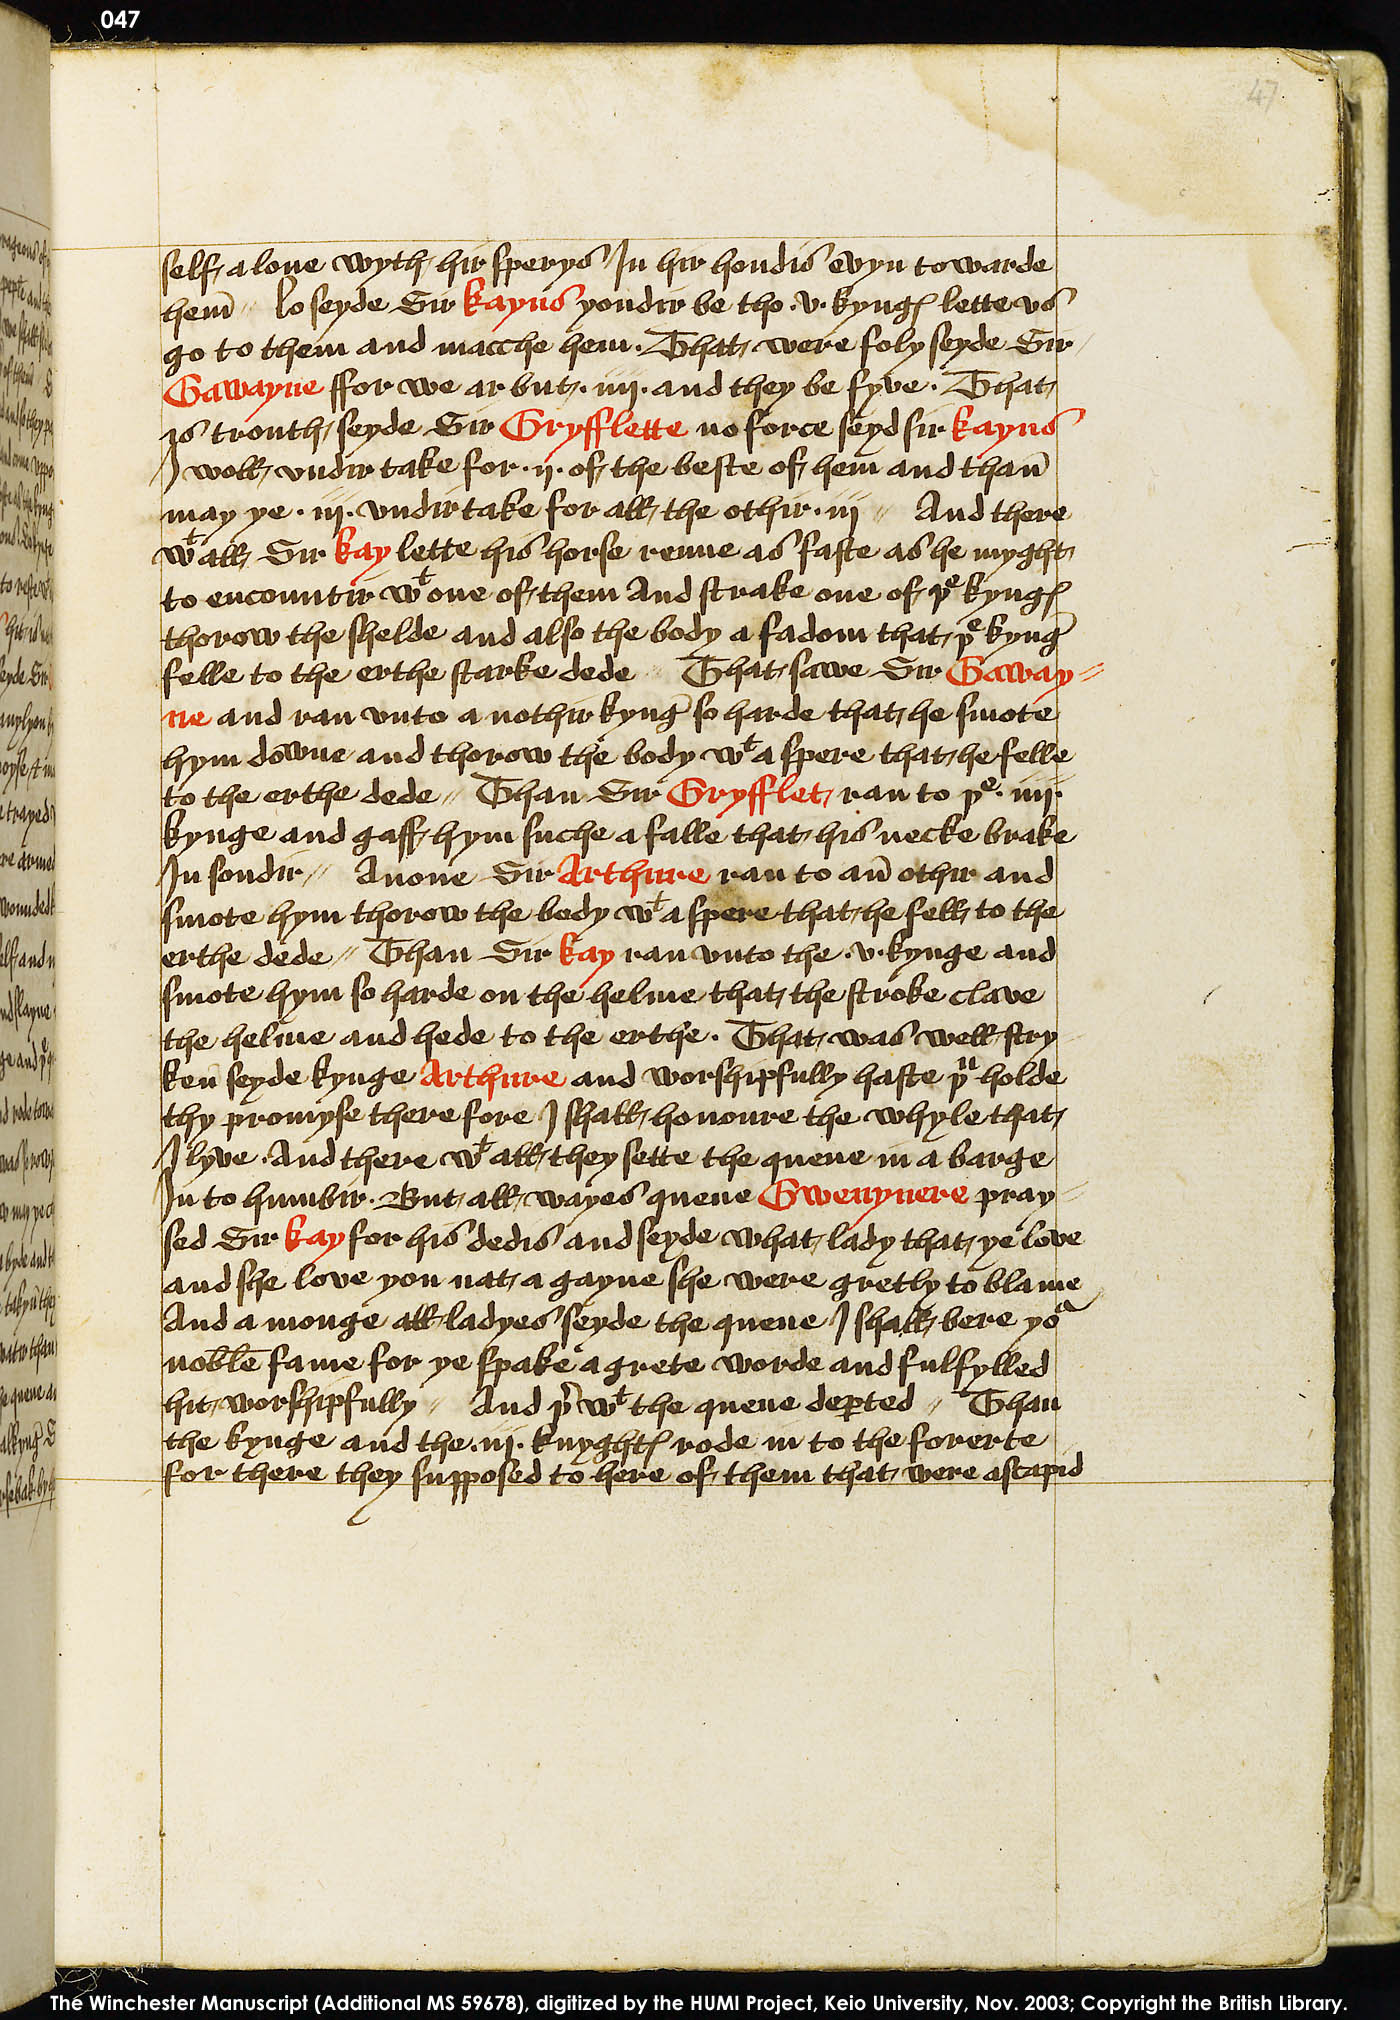 047
47
self alone wyth hir sperys In hir hondis evyn towarde
hem̄ // lo seyde Sir kayus yondir be tho .v. kyngꝭ lette vs
go to them and macche hem. That were foly seyde Sir
Gawayne ffor we ar but .iiij. and they be fyve. That
is trouth seyde Sir Gryfflette no force seyd sir kayus
I woll vndir take for .ij. of the beste of hem and than̄
may ye .iij. vndir take for all the othir .iij // And there
wᵗ all Sir kay lette his horse renne as faste as he myght
to encountir wᵗ one of them And strake one of þᵉ kyngꝭ
thorow the shelde and also the body a fadom that þᵉ kynḡ
felle to the erthe starke dede // That sawe Sir Gaway=
ne and ran vnto a nothir kynḡ so harde that he smote
hym dōwne and thorow the body wᵗ a spere that he felle
to the erthe dede // Than Sir Gryfflet ran to þᵉ .iiij.
kynge and gaff hym suche a falle that his necke brake
In sondir // Anone Sir Arthure ran to an̄ othir and
smote hym thorow the body wᵗ a spere that he fell to the
erthe dede // Than Sir kay ran vnto the .v. kynge and
smote hym so harde on the helme that the stroke clave
the helme and hede to the erthe. That was well stry-
ken̄ seyde kynge Arthure and worshipfully haste þᵘ holde
thy promyse there fore I shall honoure the whyle that
I lyve. And there wᵗ all they sette the quene in a barge
In to humbir. But all wayes quene Gwenyvere pray-
sed Sir kay for his dedis and seyde what lady that ye love
and she love you nat a gayne she were gretly to blame
And a monge all ladyes seyde the quene I shall bere yoᵘ
noble fame for ye spake a grete worde and fulfylled
hit worshipfully // And þ̄ wᵗ the quene deꝑted // Than
the kynge and the .iij. knyghtꝭ rode in to the forerte
for there they supposed to here of them that were ascapid
The Winchester Manuscript (Additional MS 59678), digitized by the HUMI Project, Keio University, Nov. 2003; Copyright the British Library.